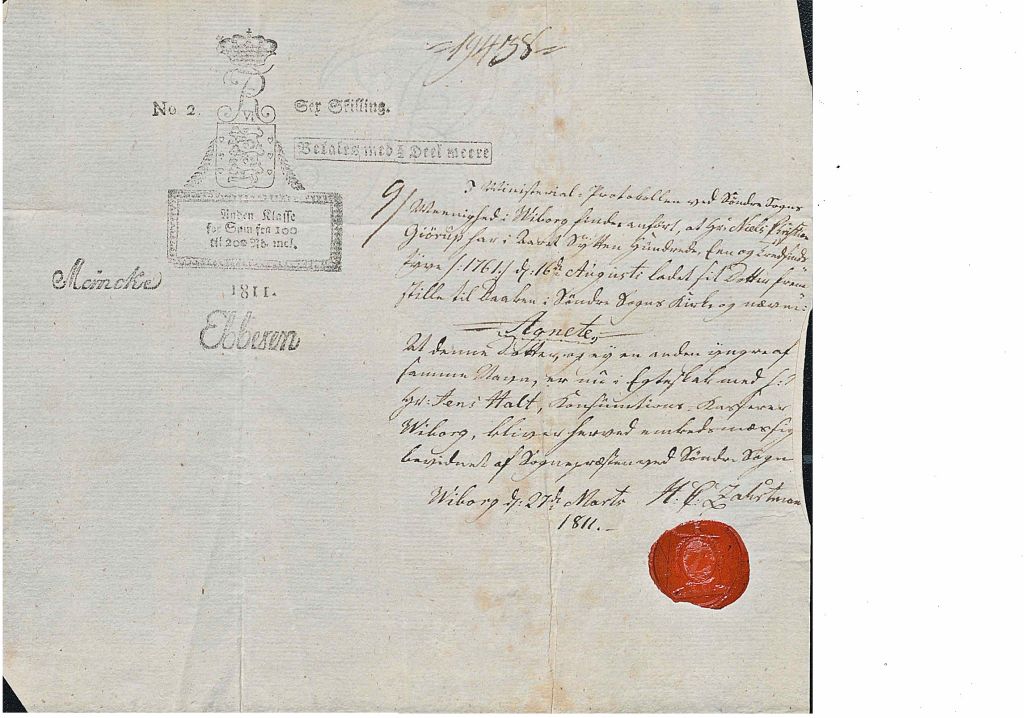 =19438=
No 2. Sex Skilling.
R
VI.
Betales med ½ Deel meere
Anden Klasse
for Sum fra 100
til 200 Rd. incl.
1811.
Meincke
Ebbesen
9/
I Ministerial-Protokollen ved Søndre Sogns
Meenighed i Wiborg findes anført, at Hr. Niels Christian
Giörup har i Aaret Sytten Hundrede, Een og tredsinds
tyve /:1761:/ d: 16de Augusti ladet sil Datter frem
stille til Daaben i Søndre Sogns Kirke og nævne:
Agnete,
At denne Datter, og ey en anden yngre af
samme Navn, er nu i Egteskab med
Hr: Jens Halt, Konsumtions-Kasserer
Wiborg, bliver herved embedsmæssig
bevidnet af Sognepræsten ved Søndre Sogn
Wiborg d: 27de Marts
1811.